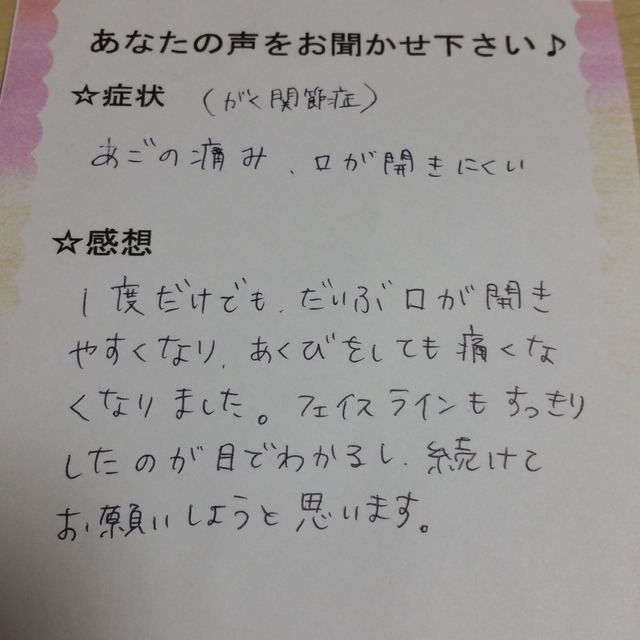 あなたの声をお聞かせ下さい♪
☆症状 (がく関節症)
あごの痛み、口が開きにくい
☆感想
1度だけでも、だいぶ口が開き
やすくなり、あくびをしても痛くな
くなりました。フェイスラインもすっきり
したのが目でわかるし、続けて
お願いしようと思います。